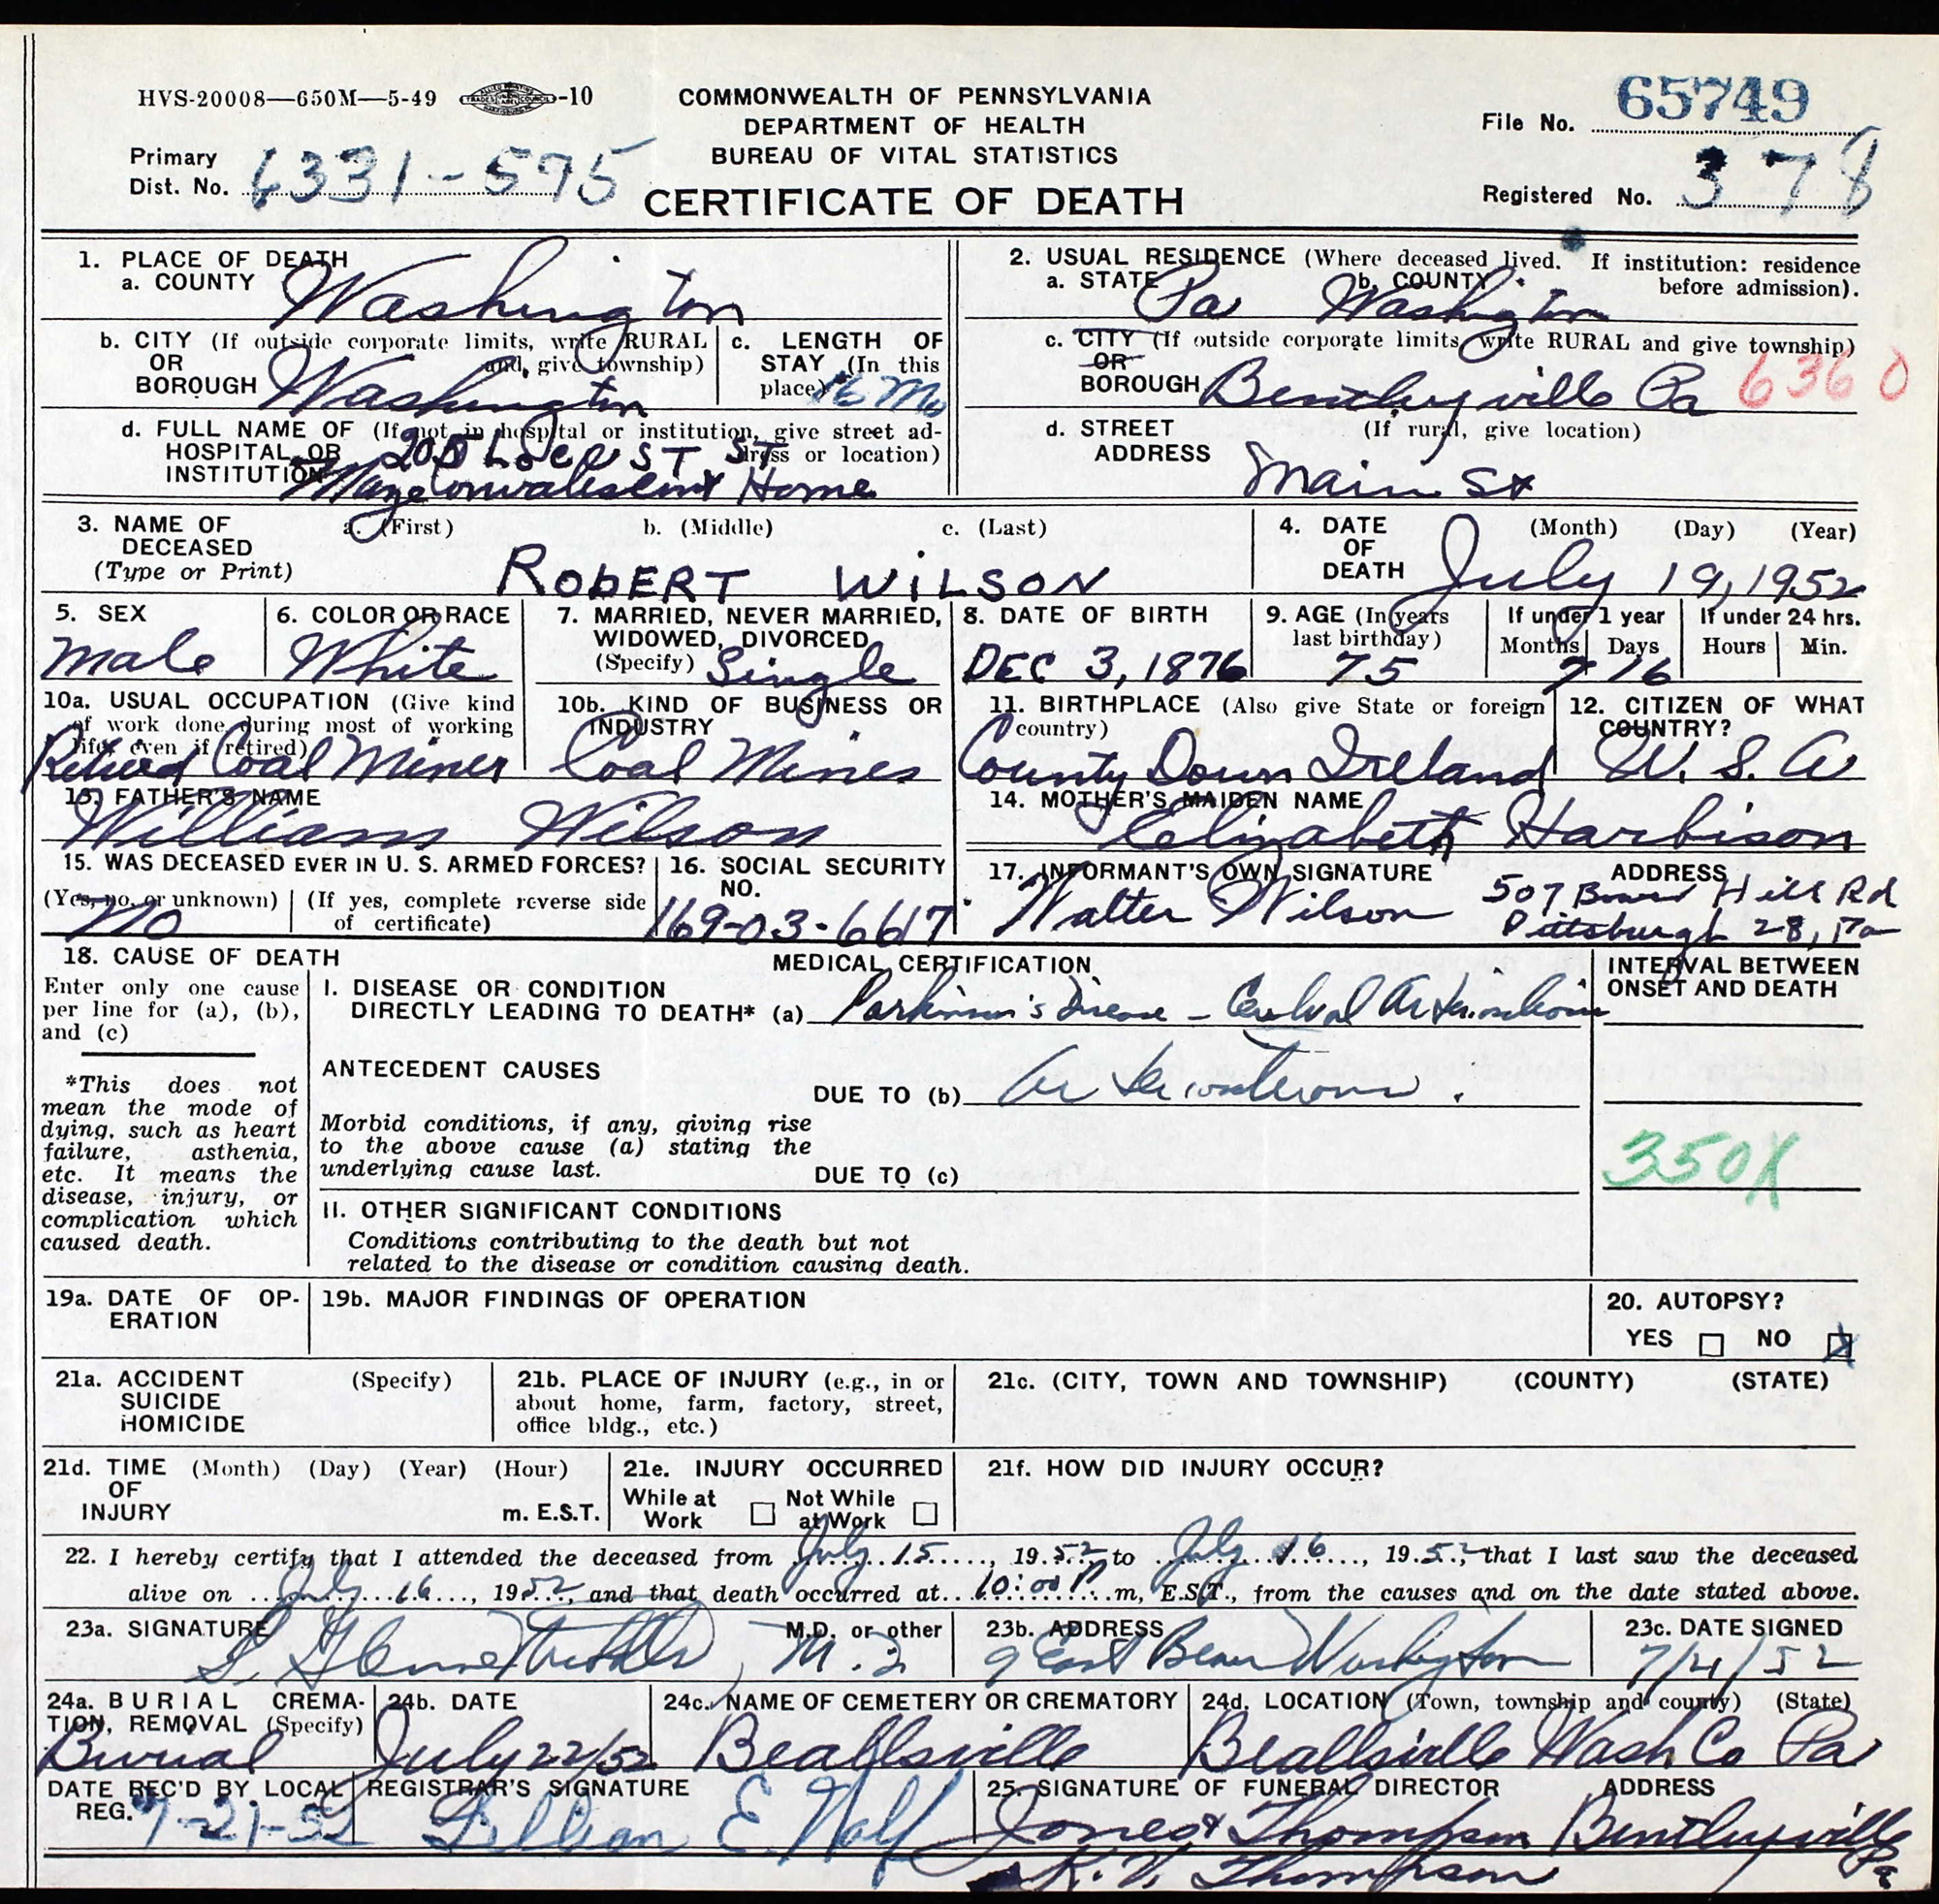 HVS-20008—650M—5-49 -10
COMMONWEALTH OF PENNSYLVANIA
DEPARTMENT OF HEALTH
BUREAU OF VITAL STATISTICS
CERTIFICATE OF DEATH
File No. 65749
Primary
Dist. No. 6331-595
Registered No. 378
1. PLACE OF DEATH
a. COUNTY Washington
b. CITY (If outside corporate limits, write RURAL
OR and give township)
BOROUGH Washington
c. LENGTH OF
STAY (In this
place) 6 Mo
d. FULL NAME OF (If not in hospital or institution, give street ad-
HOSPITAL OR dress or location)
INSTITUTION
205 LOCUST ST
Home
2. USUAL RESIDENCE (Where deceased lived. If institution: residence
before admission).
a. STATE Pa b. COUNTY Washington
c. CITY (If outside corporate limits, write RURAL and give township)
OR
BOROUGH Bentleyville Pa 6360
d. STREET (If rural, give location)
ADDRESS
Main St
3. NAME OF a. (First) b. (Middle) c. (Last)
DECEASED
(Type or Print) ROBERT WILSON
4. DATE (Month) (Day) (Year)
OF
DEATH July 19, 1952
5. SEX
Male
6. COLOR OR RACE
White
7. MARRIED, NEVER MARRIED,
WIDOWED, DIVORCED
(Specify) Single
8. DATE OF BIRTH
DEC 3, 1876
9. AGE (In years
last birthday)
75
If under 1 year
Months Days
7 16
If under 24 hrs.
Hours Min.
10a. USUAL OCCUPATION (Give kind
of work done during most of working
life, even if retired)
Retired Coal Miner
10b. KIND OF BUSINESS OR
INDUSTRY
Coal Mines
11. BIRTHPLACE (Also give State or foreign
country)
County Down Ireland
12. CITIZEN OF WHAT
COUNTRY?
U. S. A
13. FATHER'S NAME
William Wilson
14. MOTHER'S MAIDEN NAME
Elizabeth Harbison
15. WAS DECEASED EVER IN U. S. ARMED FORCES?
(Yes, no, or unknown) (If yes, complete reverse side
of certificate)
No
16. SOCIAL SECURITY
NO.
169-03-6617
17. INFORMANT'S OWN SIGNATURE ADDRESS
Walter Wilson 507 Hill Rd
Pittsburgh 28, Pa
18. CAUSE OF DEATH
Enter only one cause
per line for (a), (b),
and (c)
*This does not
mean the mode of
dying, such as heart
failure, asthenia,
etc. It means the
disease, injury, or
complication which
caused death.
MEDICAL CERTIFICATION
I. DISEASE OR CONDITION
DIRECTLY LEADING TO DEATH* (a) Parkinson's Disease -
ANTECEDENT CAUSES
DUE TO (b)
Morbid conditions, if any, giving rise
to the above cause (a) stating the
underlying cause last.
DUE TO (c)
II. OTHER SIGNIFICANT CONDITIONS
Conditions contributing to the death but not
related to the disease or condition causing death.
INTERVAL BETWEEN
ONSET AND DEATH
350X
19a. DATE OF OP-
ERATION
19b. MAJOR FINDINGS OF OPERATION
20. AUTOPSY?
YES NO X
21a. ACCIDENT (Specify)
SUICIDE
HOMICIDE
21b. PLACE OF INJURY (e.g., in or
about home, farm, factory, street,
office bldg., etc.)
21c. (CITY, TOWN AND TOWNSHIP) (COUNTY) (STATE)
21d. TIME (Month) (Day) (Year) (Hour)
OF
INJURY m. E.S.T.
21e. INJURY OCCURRED
While at Not While
Work at Work
21f. HOW DID INJURY OCCUR?
22. I hereby certify that I attended the deceased from July 15, 1952 to July 16, 1952, that I last saw the deceased
alive on July 16, 1952, and that death occurred at 10:00 P m, E.S.T., from the causes and on the date stated above.
23a. SIGNATURE M.D. or other
M.D.
23b. ADDRESS
9 East Beau Washington
23c. DATE SIGNED
24a. BURIAL CREMA-
TION, REMOVAL (Specify)
Burial
24b. DATE
July 22/52
24c. NAME OF CEMETERY OR CREMATORY
Beallsville
24d. LOCATION (Town, township and county) (State)
Beallsville Wash Co Pa
DATE REC'D BY LOCAL
REG. 7-21-52
REGISTRAR'S SIGNATURE
Lillian E.
25. SIGNATURE OF FUNERAL DIRECTOR ADDRESS
Jones & Thompson Bentleyville
K. V. Thompson Pa